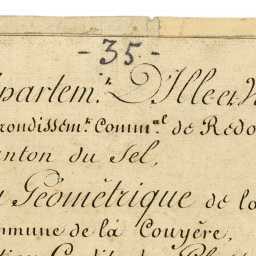 - 35. -
partem.t D'Ille et V
rondissem.t Comm.al de Redo
anton du Sel,
Géométrique de la
mmune de la Couyère,